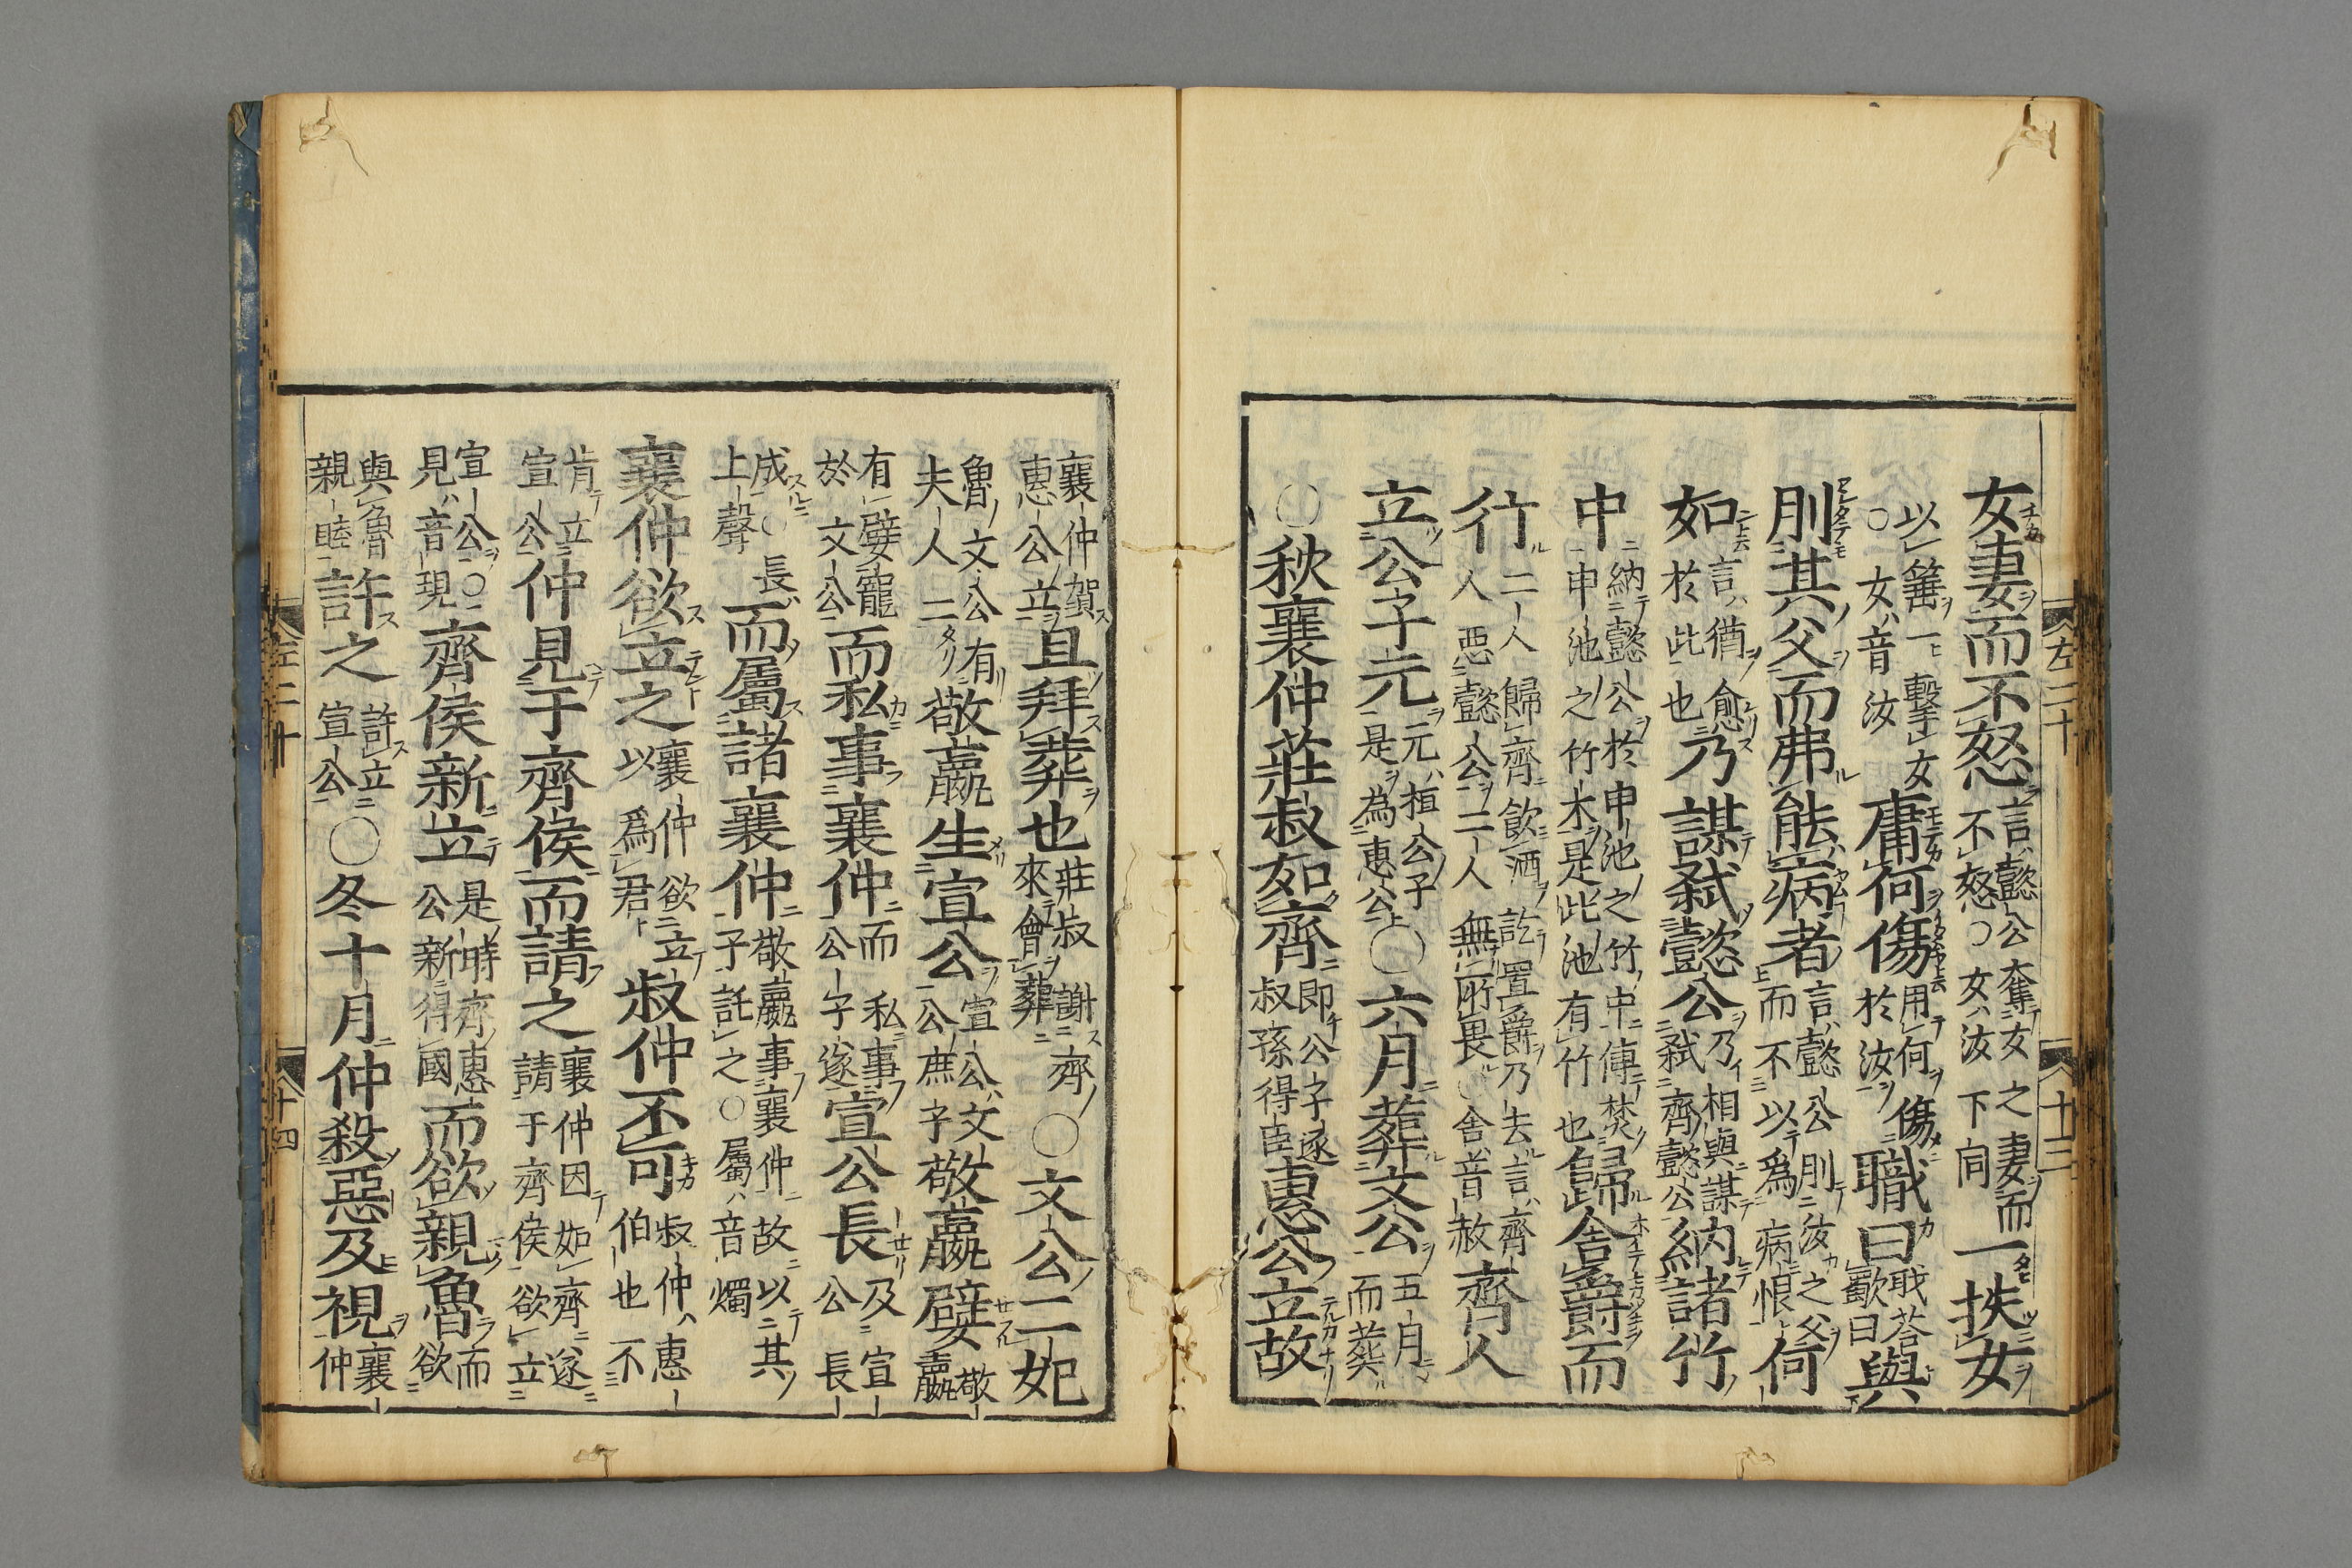 女妻而不怒言懿公奪女之妻而不怒○女汝下同一抶女
以箠一擊女○女音汝庸何傷用何傷於汝職曰戠荅歜曰與
刖其父而弗能病者言懿公刖汝之父而不以爲病恨何
如言猶愈於此也乃謀弒懿公乃相與謀弒齊懿公納諸竹
中納懿公於申池之竹中傳焚申池之竹木是此池有竹也歸舍爵而
行二人歸齊飲酒訖置爵乃去言齊人惡懿公二人無所畏○舍音赦齊人
立公子元元桓公子是為惠公○六月葬文公五月而葬
○秋襄仲莊叔如齊即公子遂叔孫得臣惠公立故
左二十
十三
襄仲賀惠公立且拜葬也莊叔謝齊來會葬○文公二妃
魯文公有夫人二敬嬴生宣公宣公文公庶子敬嬴嬖敬嬴
有嬖寵於文公而私事襄仲而私事公子遂宣公長及宣公長
成○長上聲而屬諸襄仲敬嬴事襄仲故以其子託之○屬音燭
襄仲欲立之襄仲欲立以爲君叔仲不可叔仲惠伯也不
肯立宣公仲見于齊侯而請之襄仲因如齊遂請于齊侯欲立
宣公○見音現齊侯新立是時齊惠公新得國而欲親魯而欲
與魯親睦許之許立宣公○冬十月仲殺惡及視襄仲
左二十
十四